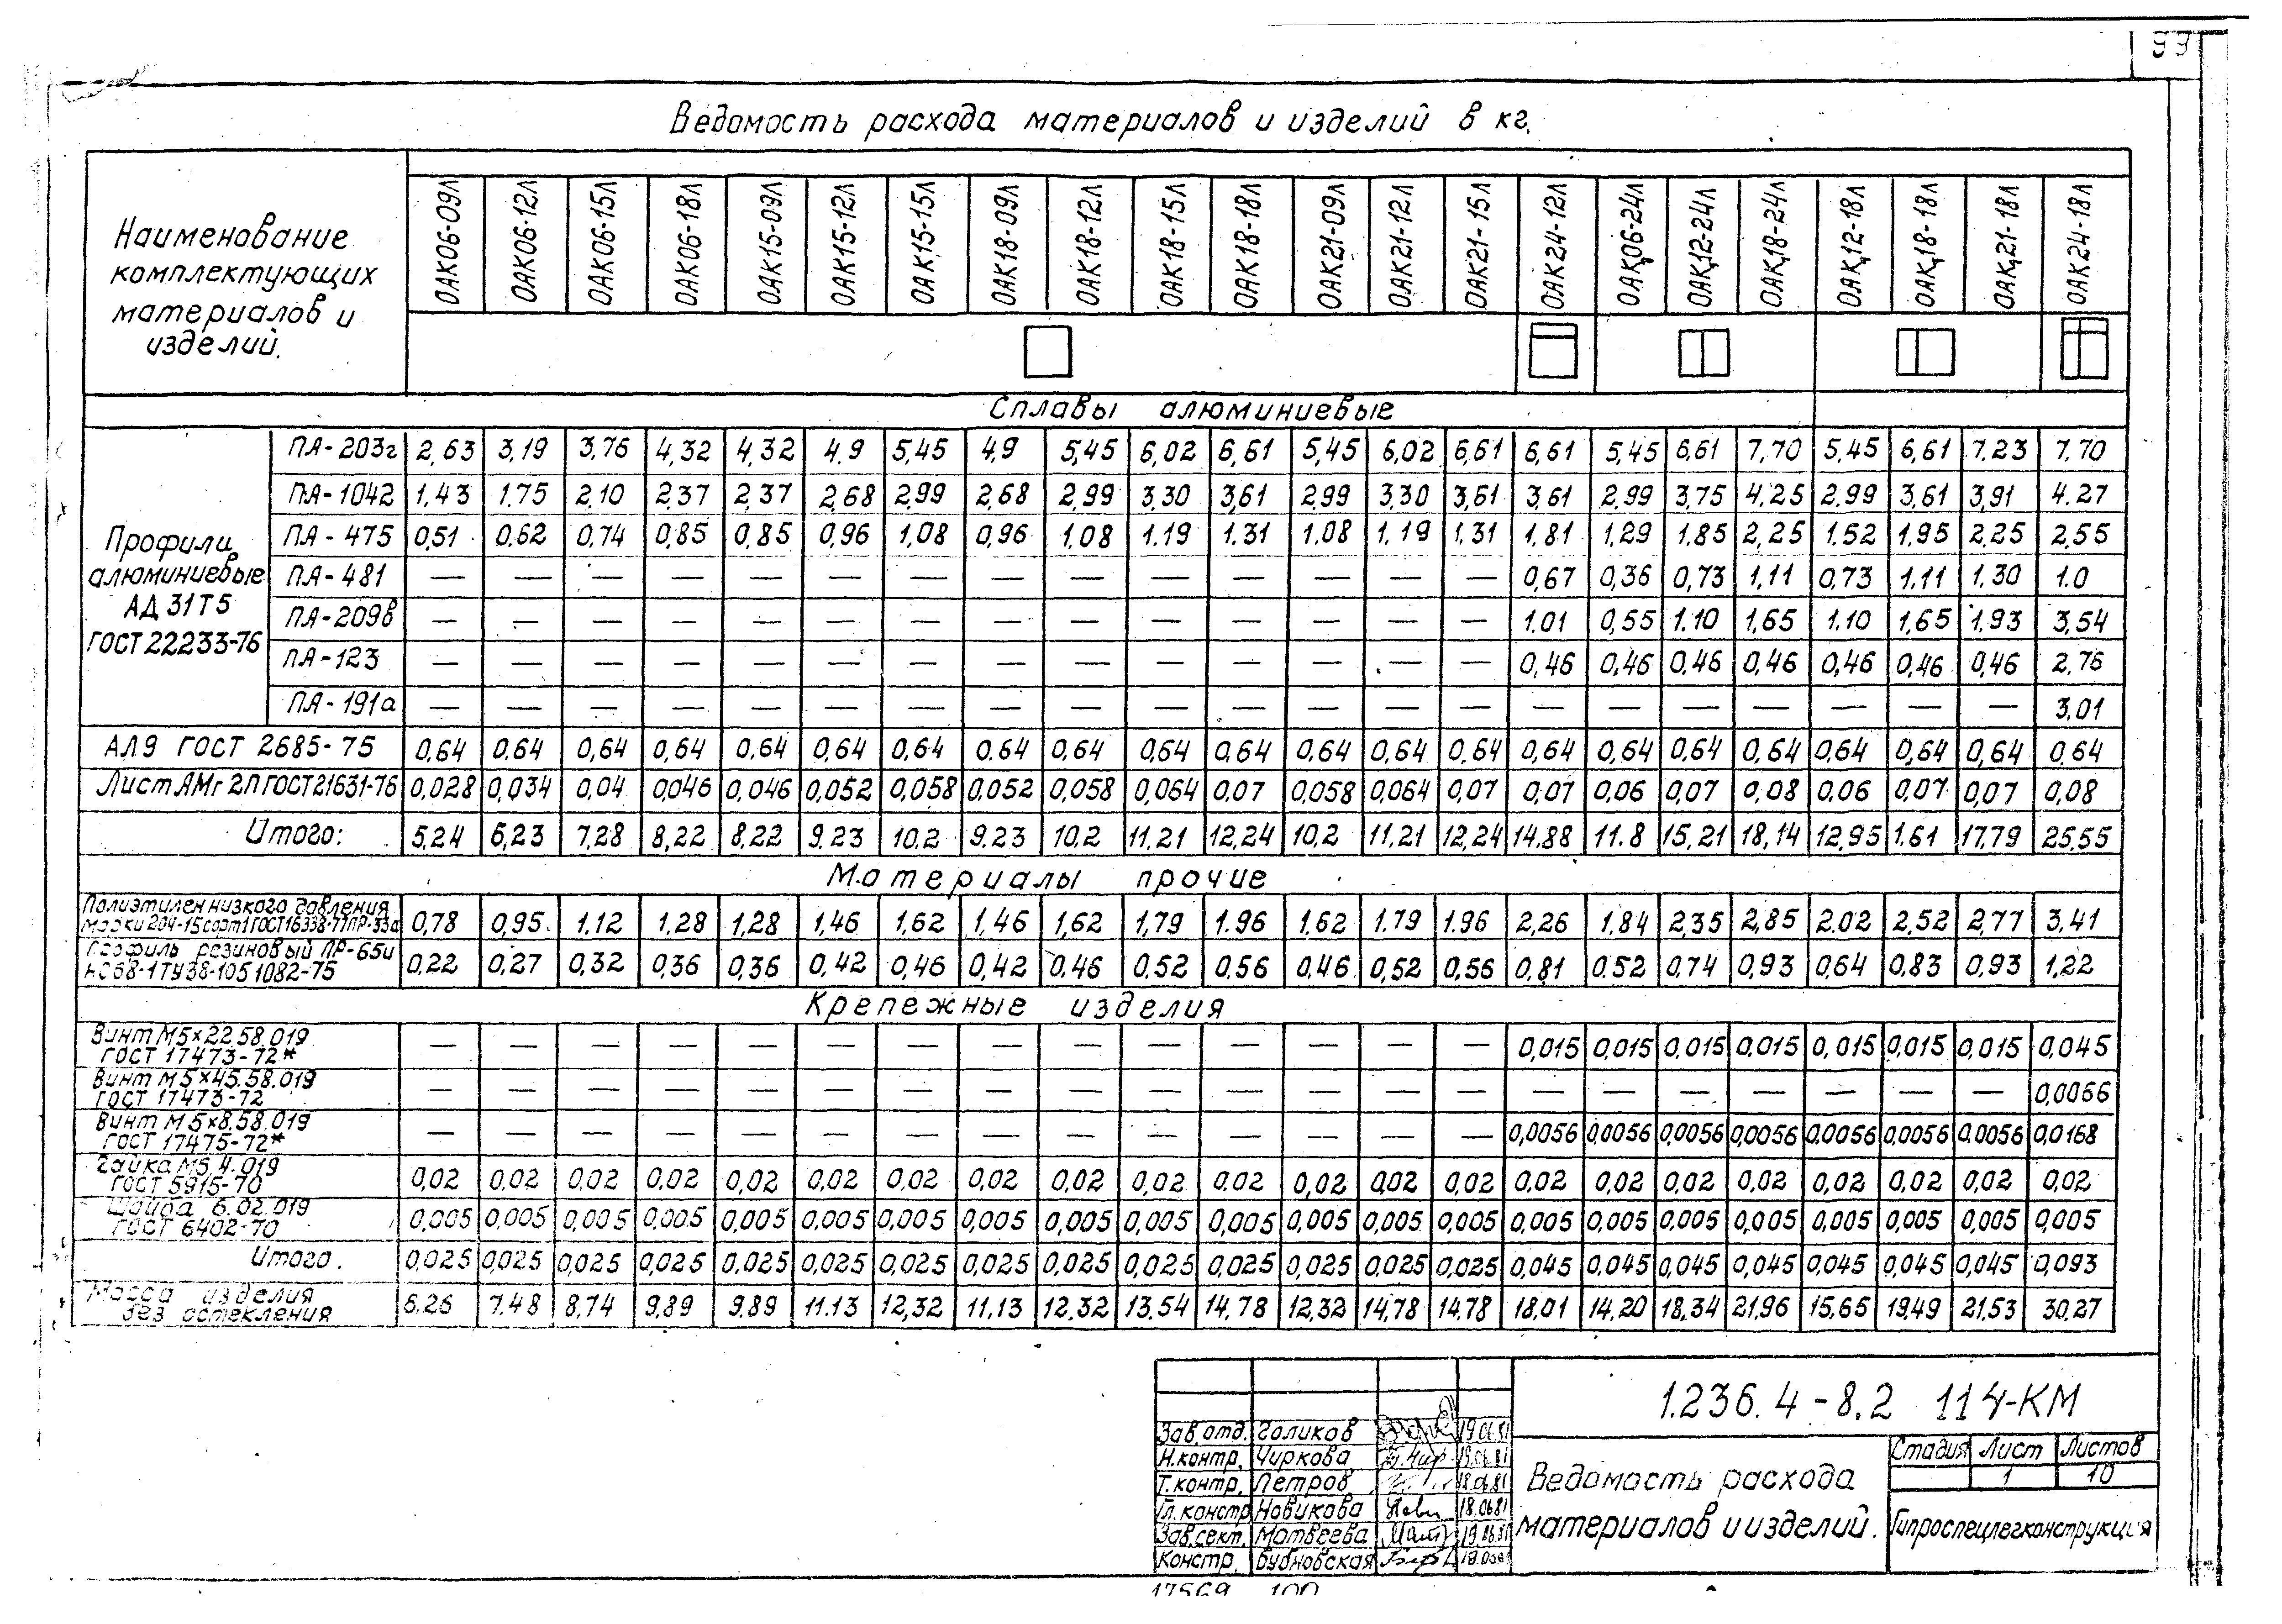 99
Ведомость расхода материалов и изделий в кг.
Наименование комплектующих материалов и изделий.
ОАК06-09Л ОАК06-12Л ОАК06-15Л ОАК06-18Л ОАК15-09Л ОАК15-12Л ОАК15-15Л ОАК18-09Л ОАК18-12Л ОАК18-15Л ОАК18-18Л ОАК21-09Л ОАК21-12Л ОАК21-15Л ОАК24-12Л ОАК06-24Л ОАК12-24Л ОАК18-24Л ОАК12-18Л ОАК18-18Л ОАК21-18Л ОАК24-18Л
Сплавы алюминиевые
Профили алюминиевые АД 31Т5 ГОСТ 22233-76
ПА-203г 2,63 3,19 3,76 4,32 4,32 4,9 5,45 4,9 5,45 6,02 6,61 5,45 6,02 6,61 6,61 5,45 6,61 7,70 5,45 6,61 7,23 7,70
ПА-1042 1,43 1,75 2,10 2,37 2,37 2,68 2,99 2,68 2,99 3,30 3,61 2,99 3,30 3,61 3,61 2,99 3,75 4,25 2,99 3,61 3,91 4.27
ПА-475 0,51 0.62 0,74 0,85 0,85 0,96 1,08 0,96 1,08 1.19 1.31 1.08 1,19 1,31 1,81 1,29 1,85 2,25 1.52 1,95 2,25 2,55
ПА-481 — — — — — — — — — — — — — — 0,67 0,36 0,73 1,11 0,73 1,11 1,30 1.0
ПА-209в — — — — — — — — — — — — — — 1.01 0,55 1.10 1,65 1.10 1,65 1.93 3,54
ПА-123 — — — — — — — — — — — — — — 0,46 0,46 0,46 0,46 0,46 0,46 0,46 2,76
ПА-191а — — — — — — — — — — — — — — — — — — — — — 3,01
АЛ9 ГОСТ 2685-75 0,64 0,64 0,64 0,64 0,64 0,64 0,64 0.64 0,64 0,64 0,64 0,64 0,64 0,64 0,64 0,64 0,64 0,64 0,64 0,64 0,64 0,64
Лист АМг 2П ГОСТ 21631-76 0,028 0,034 0,04 0,046 0,046 0,052 0,058 0,052 0,058 0,064 0,07 0,058 0,064 0,07 0,07 0,06 0,07 0,08 0,06 0,07 0,07 0,08
Итого: 5,24 6,23 7,28 8,22 8,22 9.23 10.2 9.23 10.2 11,21 12,24 10.2 11,21 12,24 14,88 11.8 15,21 18,14 12,95 1.61 17,79 25,55
Материалы прочие
Полиэтилен низкого давления
марки 204-15 сорт 1 ГОСТ 16338-77 ПР-33а 0,78 0,95 1.12 1,28 1,28 1,46 1,62 1,46 1,62 1,79 1.96 1,62 1.79 1.96 2,26 1,84 2,35 2,85 2.02 2,52 2,77 3,41
Профиль резиновый ПР-65и
НО68-1 ТУ38-1051082-75 0,22 0,27 0,32 0,36 0,36 0,42 0,46 0,42 0,46 0.52 0,56 0,46 0,52 0,56 0,81 0.52 0,74 0,93 0,64 0,83 0,93 1,22
Крепежные изделия
Винт М5×22.58.019
ГОСТ 17473-72* — — — — — — — — — — — — — — 0,015 0,015 0,015 0,015 0,015 0,015 0,015 0,045
Винт М5×45.58.019
ГОСТ 17473-72 — — — — — — — — — — — — — — — — — — — — — 0,0056
Винт М5×8.58.019
ГОСТ 17475-72* — — — — — — — — — — — — — — 0,0056 0,0056 0,0056 0,0056 0,0056 0,0056 0,0056 0,0168
Гайка М5.4.019
ГОСТ 5915-70 0,02 0,02 0,02 0,02 0,02 0,02 0,02 0,02 0,02 0,02 0.02 0,02 0,02 0,02 0,02 0,02 0,02 0,02 0,02 0,02 0,02 0,02
Шайба 6.02.019
ГОСТ 6402-70 0,005 0,005 0,005 0,005 0,005 0,005 0,005 0,005 0,005 0,005 0,005 0,005 0,005 0,005 0,005 0,005 0,005 0,005 0,005 0,005 0,005 0,005
Итого. 0,025 0,025 0,025 0,025 0,025 0,025 0,025 0,025 0,025 0,025 0,025 0,025 0,025 0,025 0,045 0,045 0,045 0,045 0,045 0,045 0,045 0,093
Масса изделия
без остекления 6.26 7.48 8,74 9,89 9.89 11.13 12,32 11,13 12,32 13.54 14,78 12,32 14,78 14.78 18,01 14,20 18,34 21,96 15,65 19,49 21.53 30,27
1.236.4-8.2 114-КМ
Зав.отд. Голиков 19.06.81
Н.контр. Чиркова 19.06.81
Т.контр. Петров 18.06.81
Гл.констр Новикова 18.0681
Зав.сект. Матвеева
Констр. Бубновская
Ведомость расхода
материалов и изделий.
Стадия Лист Листов
1 10
Гипроспецлегконструкция
17569 100